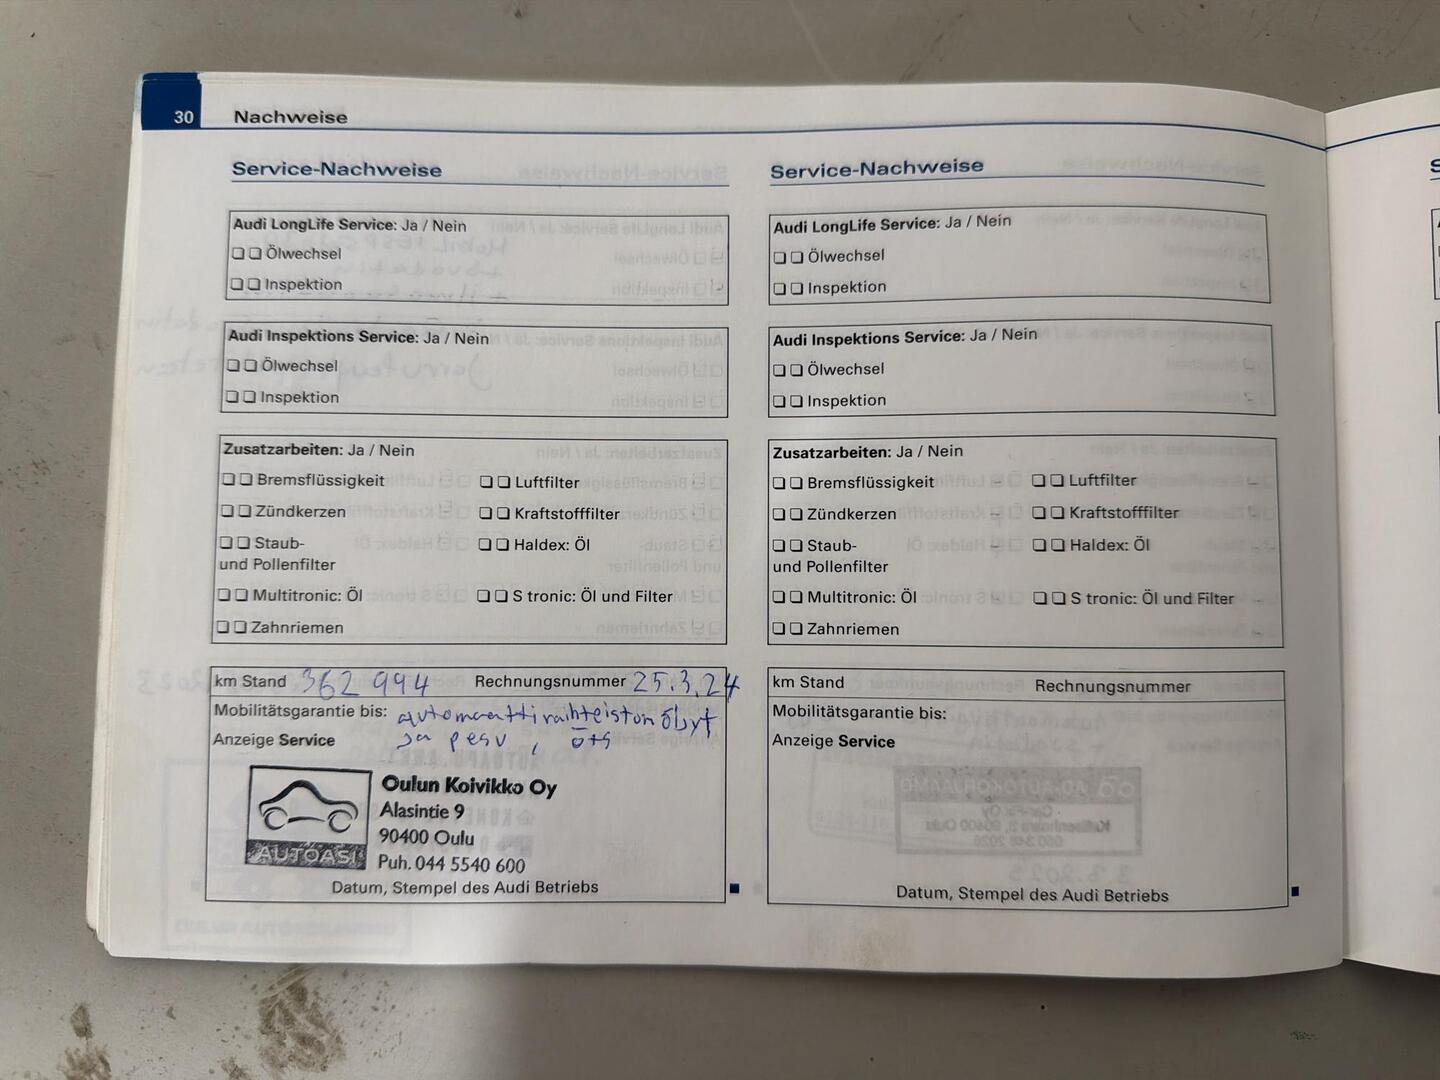 30 Nachweise
Service-Nachweise
Audi LongLife Service: Ja / Nein
Ölwechsel
Inspektion
Audi Inspektions Service: Ja / Nein
Ölwechsel
Inspektion
Zusatzarbeiten: Ja / Nein
Bremsflüssigkeit Luftfilter
Zündkerzen Kraftstofffilter
Staub- Haldex: Öl
und Pollenfilter
Multitronic: Öl S tronic: Öl und Filter
Zahnriemen
km Stand 362 994 Rechnungsnummer 25.3.24
Mobilitätsgarantie bis: automaattivaihteiston öljyt
Anzeige Service ja pesu, öts
Oulun Koivikko Oy
Alasintie 9
90400 Oulu
AUTOASI
Puh. 044 5540 600
Datum, Stempel des Audi Betriebs
Service-Nachweise
Audi LongLife Service: Ja / Nein
Ölwechsel
Inspektion
Audi Inspektions Service: Ja / Nein
Ölwechsel
Inspektion
Zusatzarbeiten: Ja / Nein
Bremsflüssigkeit Luftfilter
Zündkerzen Kraftstofffilter
Staub- Haldex: Öl
und Pollenfilter
Multitronic: Öl S tronic: Öl und Filter
Zahnriemen
km Stand Rechnungsnummer
Mobilitätsgarantie bis:
Anzeige Service
Datum, Stempel des Audi Betriebs